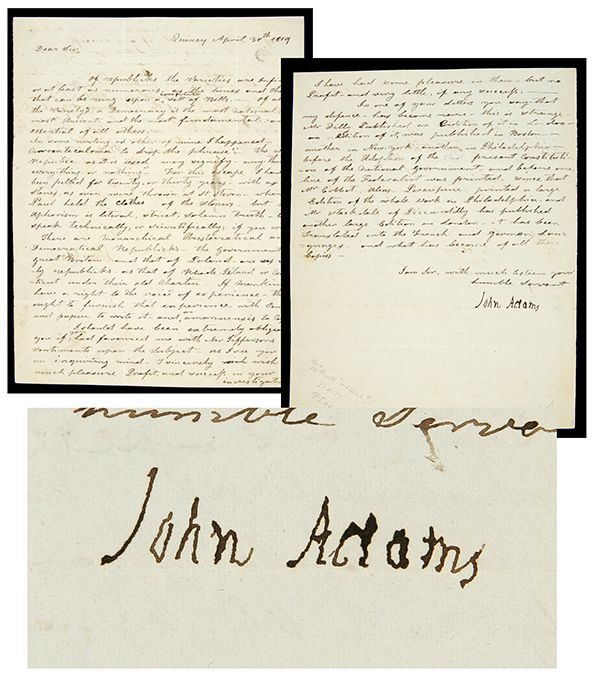 Quincy April 30th 1819
Dear Sir,
Of republicks the Varieties are
or at least as numerous as the tunes and
that can be rung upon a set of Bells. — Of
the Variety's a Democracy is the most natural
most Ancient and the most fundamental and
essential of all others. —
In some writing or other of mine I happened
to drop the phrase "the word
republic as it is used may signify any thing
every thing or nothing" For this I have
been pelted for twenty or thirty years with as
Stones as ever were thrown at St Stephen when
Paul held the clothes of the Stoners. but
Aphorism is literal, strict, solemn truth.
speak technically, or scientifically, if you
There are Monarchical Aristocratical
Democratical Republicks. The Government
great Britain and that of Poland are as
ly republicks as that of Rhode Island or
ticut under their old Charters. If mankind
have a right to the voice of experience — they
ought to furnish that experience with
and paper to write it and an amanuensis to
I should have been extremely obliged
you if had favoured me with Mr Jeffersons
sentiments upon the subject — as I see you
an inquiring mind. I sincerely wish
much pleasure, Profit, and success in your
investigat
I have had some pleasure in them — but no
Profit — and very little, if any success. —
In one of your letters you say that
my defence has become rare — this is strange
Mr Dilly Published an Edition of it in London
an Edition of it was published in Boston —
another New York another in Philadelphia —
before the Adoption of the present Constituti-
on of the National government and before one
line of the Federalist was printed. since that
Mr Cobbet, alias, Porcupine printed a large
Edition of the whole work in Philadelphia, and
Mr Stockdale of Piccadilly has published
another large Edition in London it has been
translated into the French and german Lan-
guages — and what has become of all these
Copies —
I am Sir, with much esteem your
humble Servant
John Adams
humble Serva
John Adams